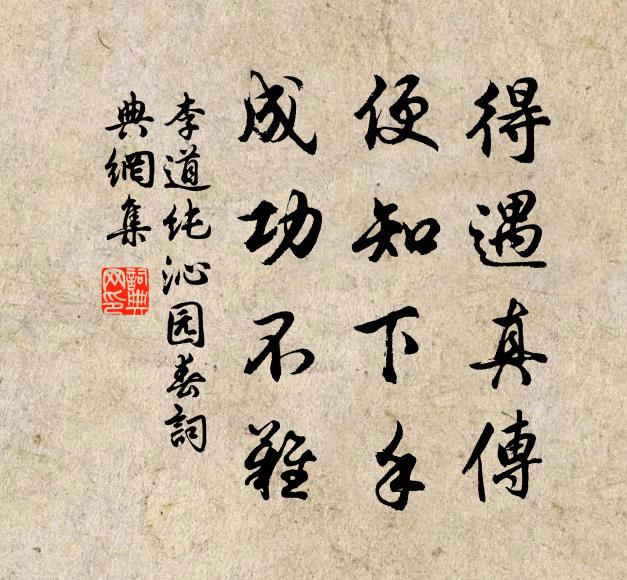 得遇真傳
便知下手
成功不難
李道纯沁园春詞
典網集
詞典网印